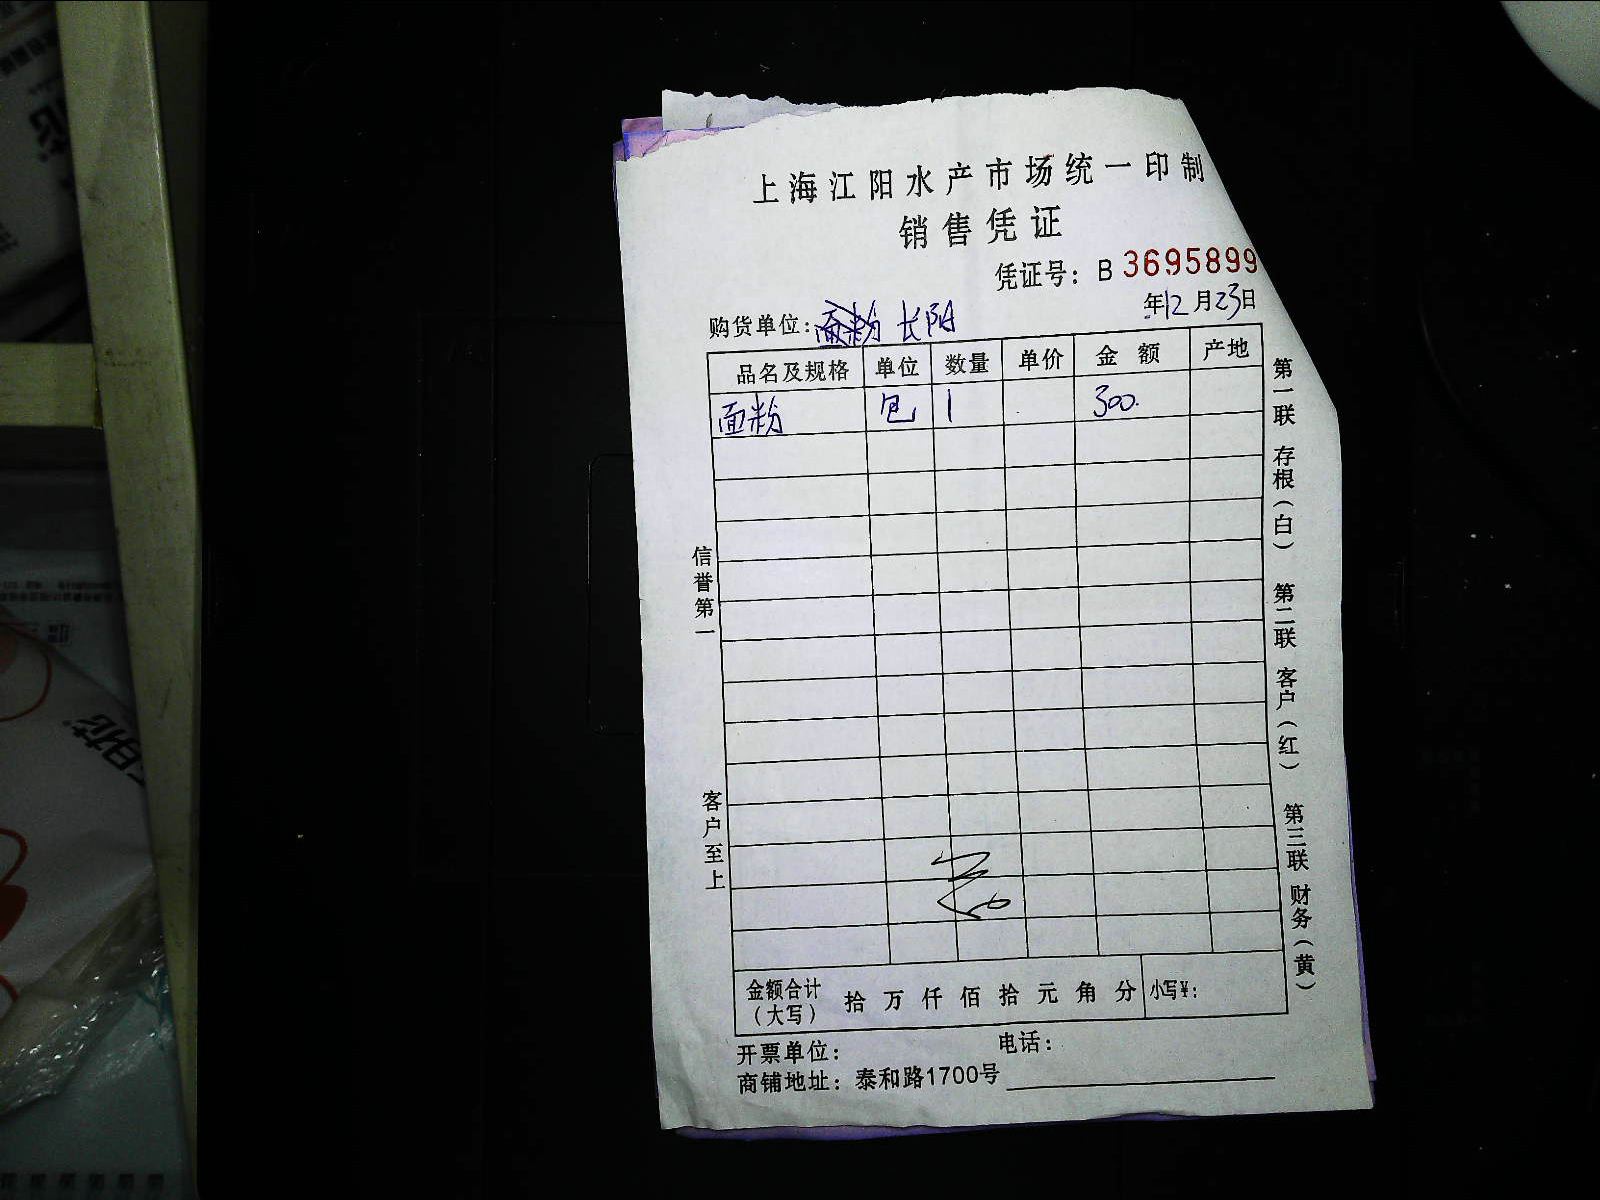 上海江阳水产市场统一印制
销售凭证
凭证号：B 3695899
年12月23日
购货单位：面粉 长阳
品名及规格 单位 数量 单价 金额 产地
面粉 包 1 300.
信誉第一
客户至上
第一联 存根（白） 第二联 客户（红） 第三联 财务（黄）
金额合计（大写） 拾 万 仟 佰 拾 元 角 分 小写¥：
开票单位： 电话：
商铺地址：泰和路1700号